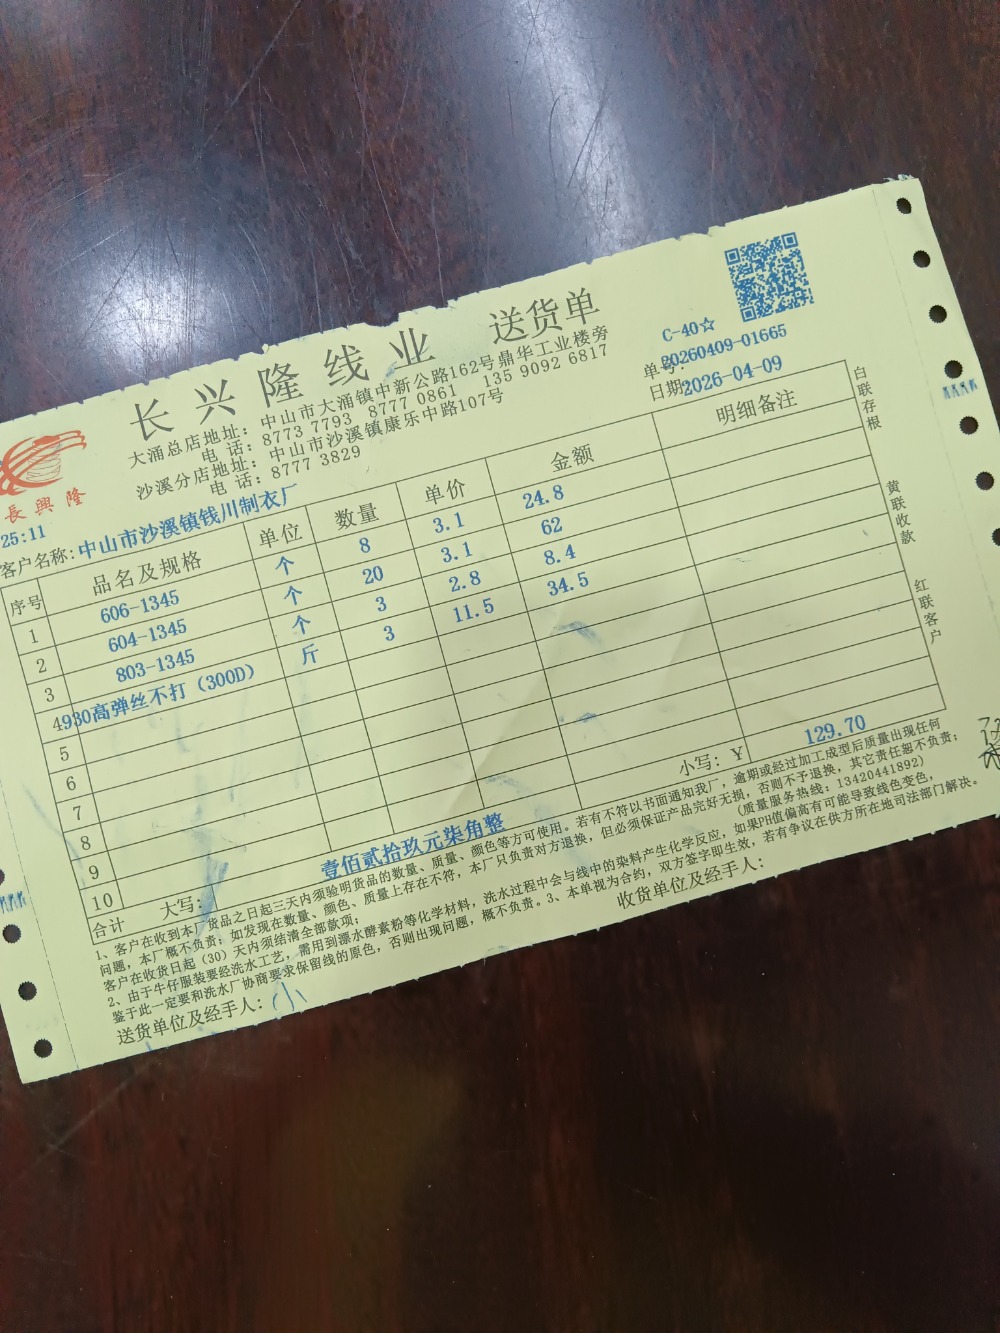 长兴隆线业 送货单
大涌总店地址：中山市大涌镇中新公路162号鼎华工业楼旁
电 话：8773 7793 8777 0861 135 9092 6817
沙溪分店地址：中山市沙溪镇康乐中路107号
电 话：8777 3829
C-40☆
单号：20260409-01665
日期：2026-04-09
長興隆
25:11
客户名称：中山市沙溪镇钱川制衣厂
序号 品名及规格 单位 数量 单价 金额 明细备注
1 606-1345 个 8 3.1 24.8
2 604-1345 个 20 3.1 62
3 803-1345 个 3 2.8 8.4
4 930高弹丝不打（300D） 斤 3 11.5 34.5
5
6
7
8
9
10
合计 大写：壹佰贰拾玖元柒角整 小写：￥ 129.70
1、客户在收到本厂货品之日起三天内须验明货品的数量、质量、颜色等方可使用。若有不符以书面通知我厂，逾期或经过加工成型后质量出现任何
问题，本厂概不负责；如发现在数量、颜色、质量上存在不符，本厂只负责对方退换，但必须保证产品完好无损，否则不予退换，其它责任恕不负责；
客户在收货日起（30）天内须结清全部款项； （质量服务热线：13420441892）
2、由于牛仔服装要经洗水工艺，需用到漂水酵素粉等化学材料，洗水过程中会与线中的染料产生化学反应，如果PH值偏高有可能导致线色变色，
鉴于此一定要和洗水厂协商要求保留线的原色，否则出现问题，概不负责。3、本单视为合约，双方签字即生效，若有争议在供方所在地司法部门解决。
送货单位及经手人： 收货单位及经手人：
白联存根
黄联收款
红联客户